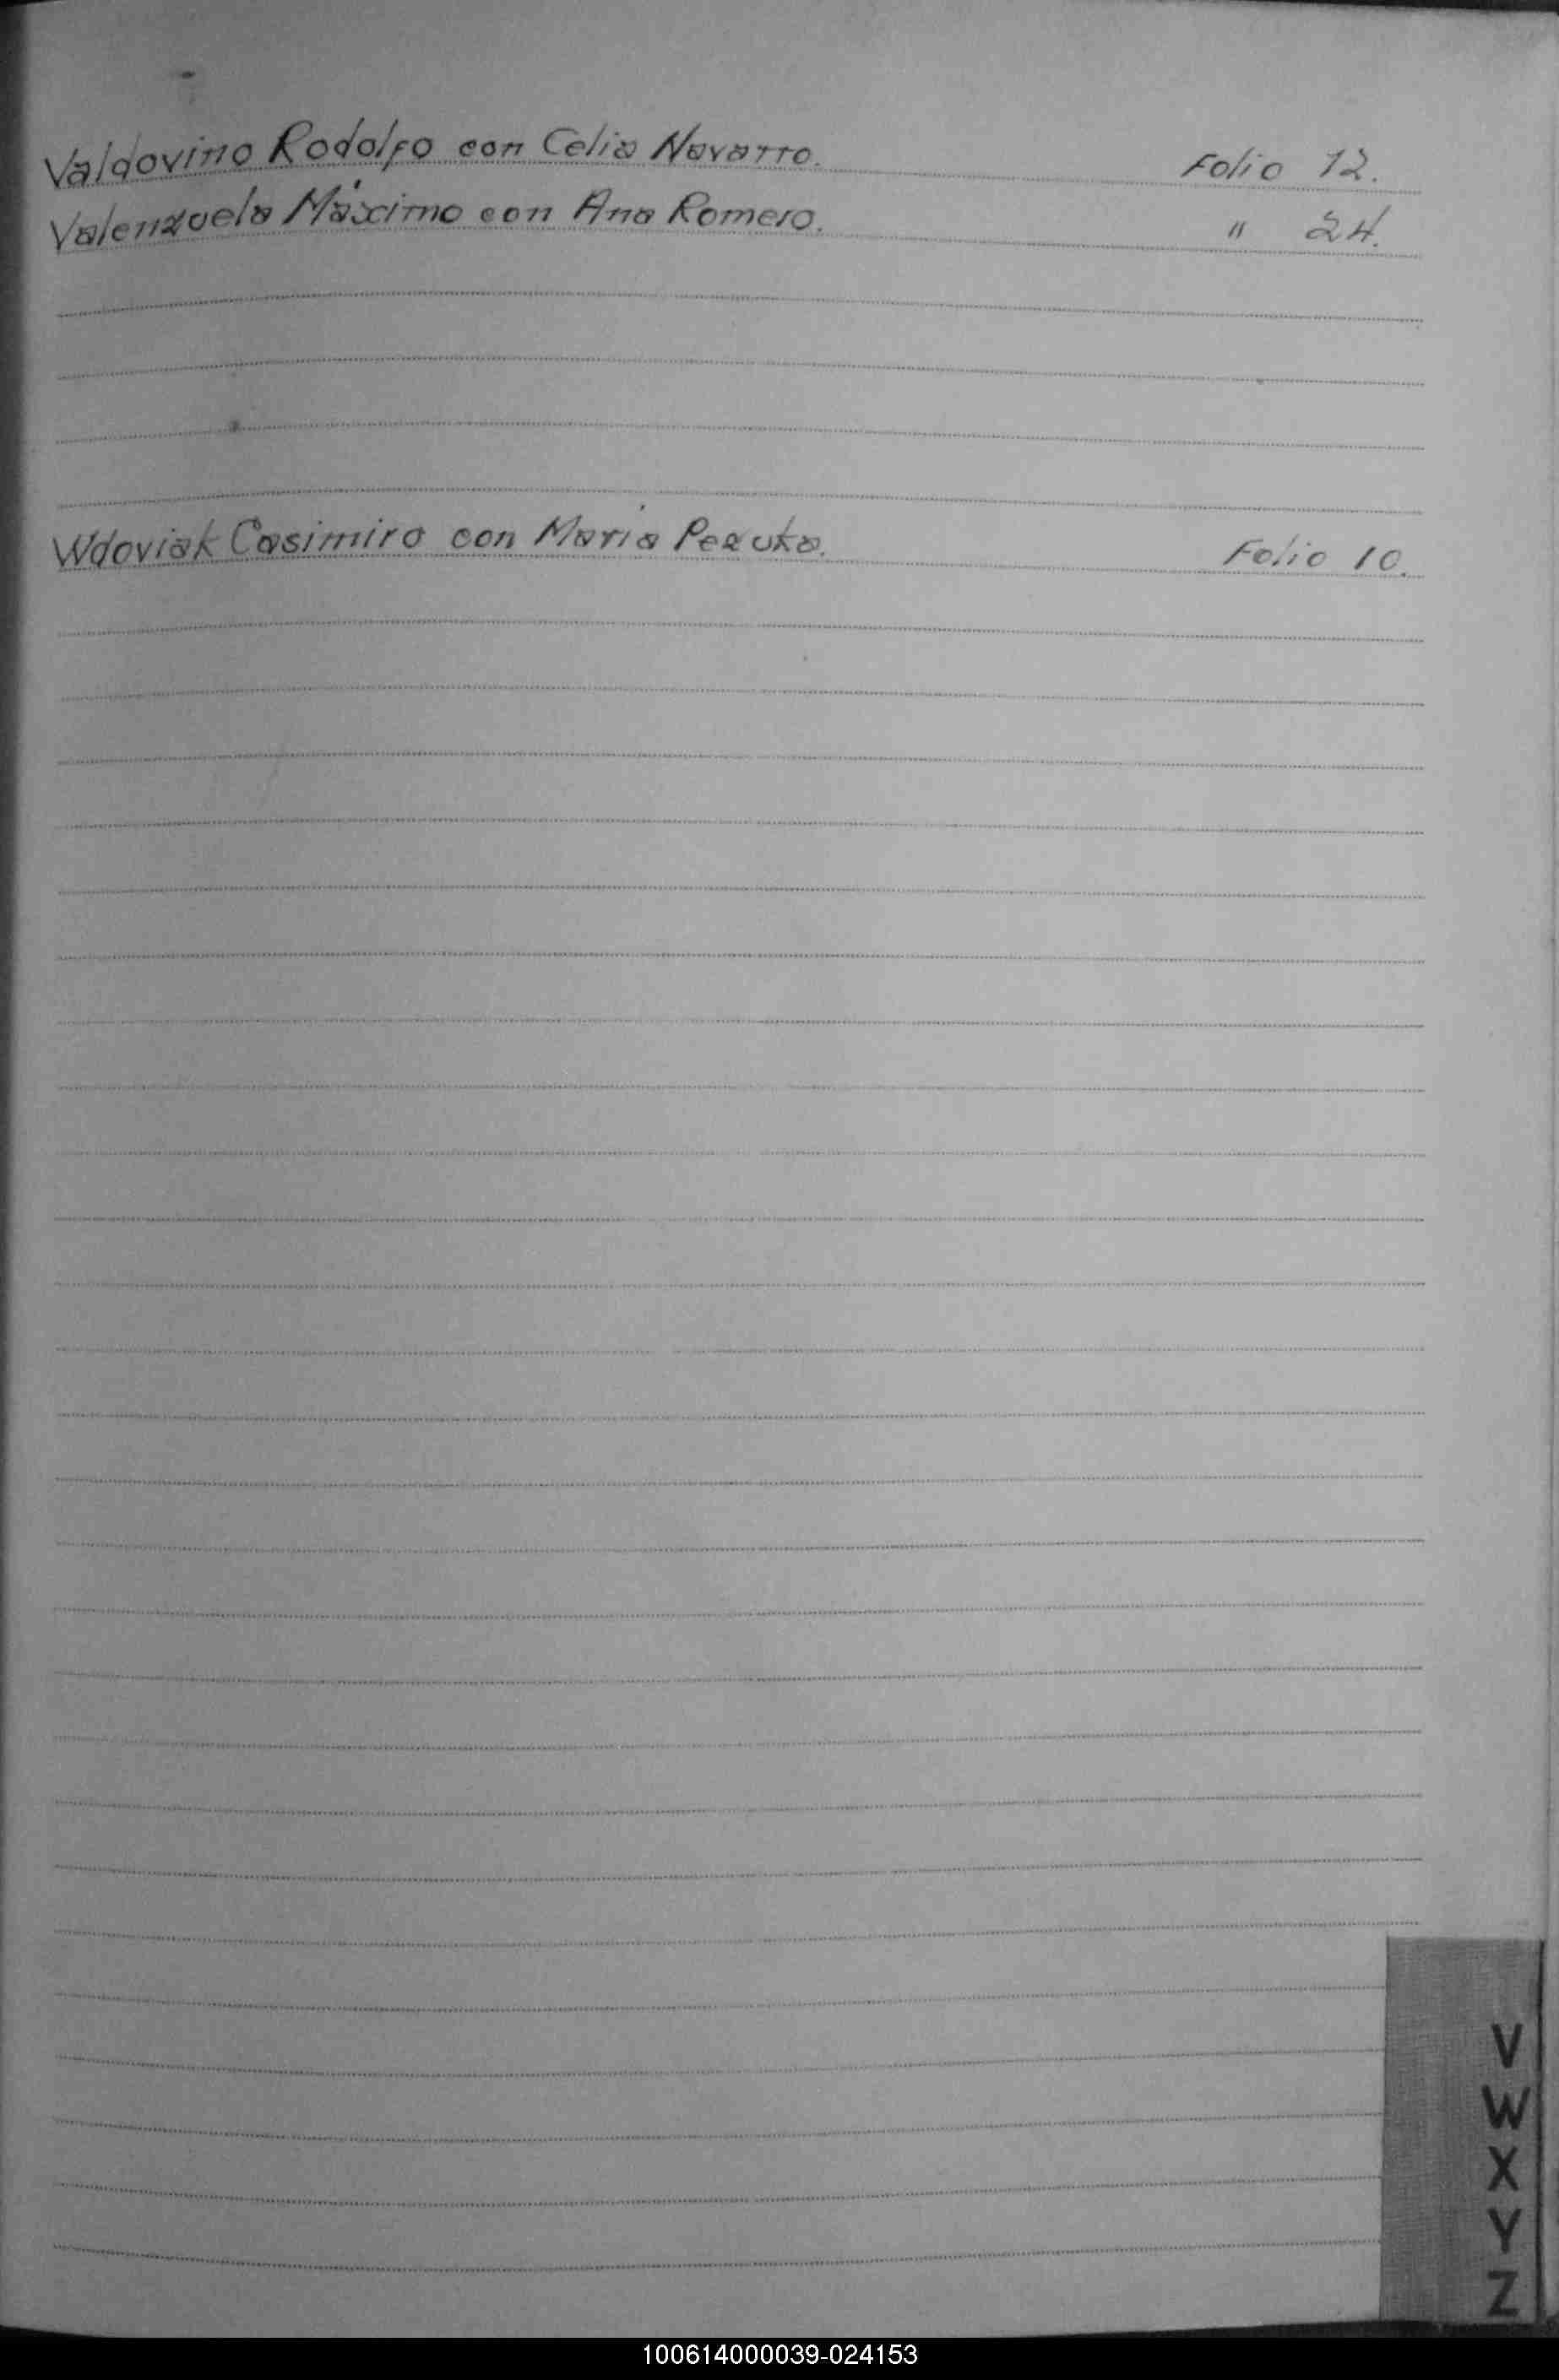 Valdovino Rodolfo con Celia Navarro. Folio 12.
Valenzuela Máximo con Ana Romero. " 24.
Wdoviak Casimiro con Maria Pezuka. Folio 10.
V
W
X
Y
Z
100614000039-024153